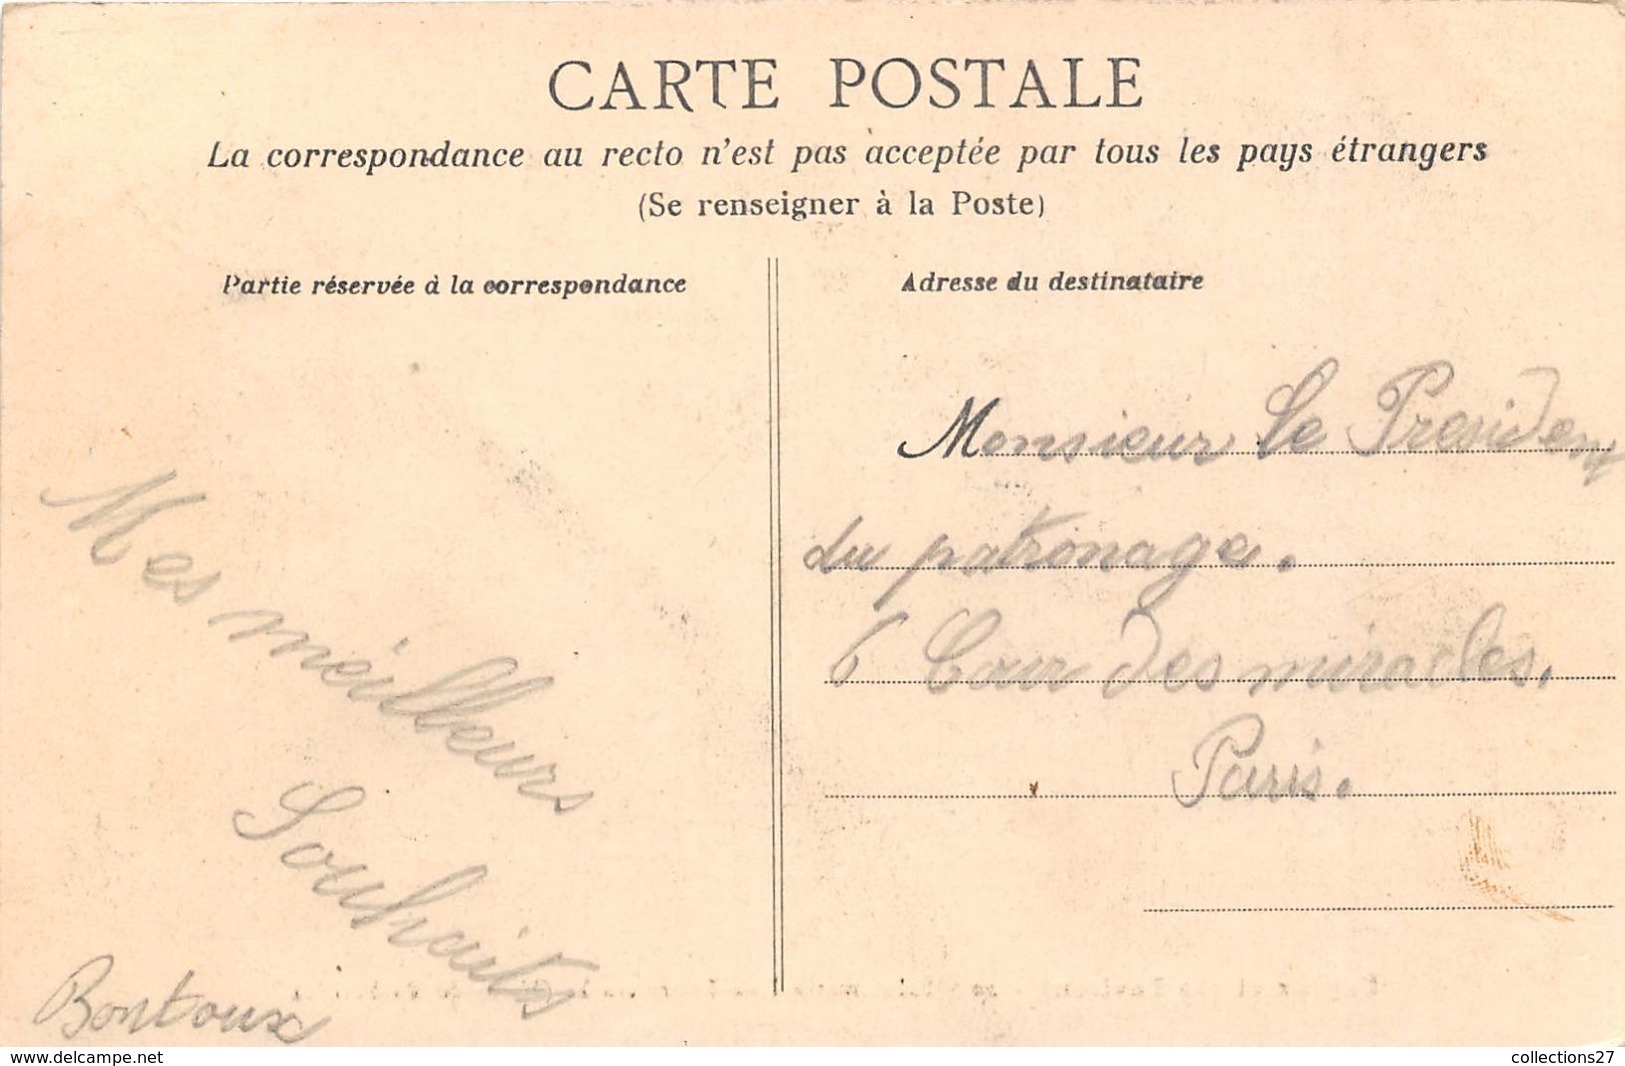 CARTE POSTALE
La correspondance au recto n'est pas acceptée par tous les pays étrangers
(Se renseigner à la Poste)
Partie réservée à la correspondance
Mes meilleurs
Souhaits
Bontoux
Adresse du destinataire
Monsieur Le President
du patronage.
6 Cour Des miracles.
Paris.
www.delcampe.net
collections27